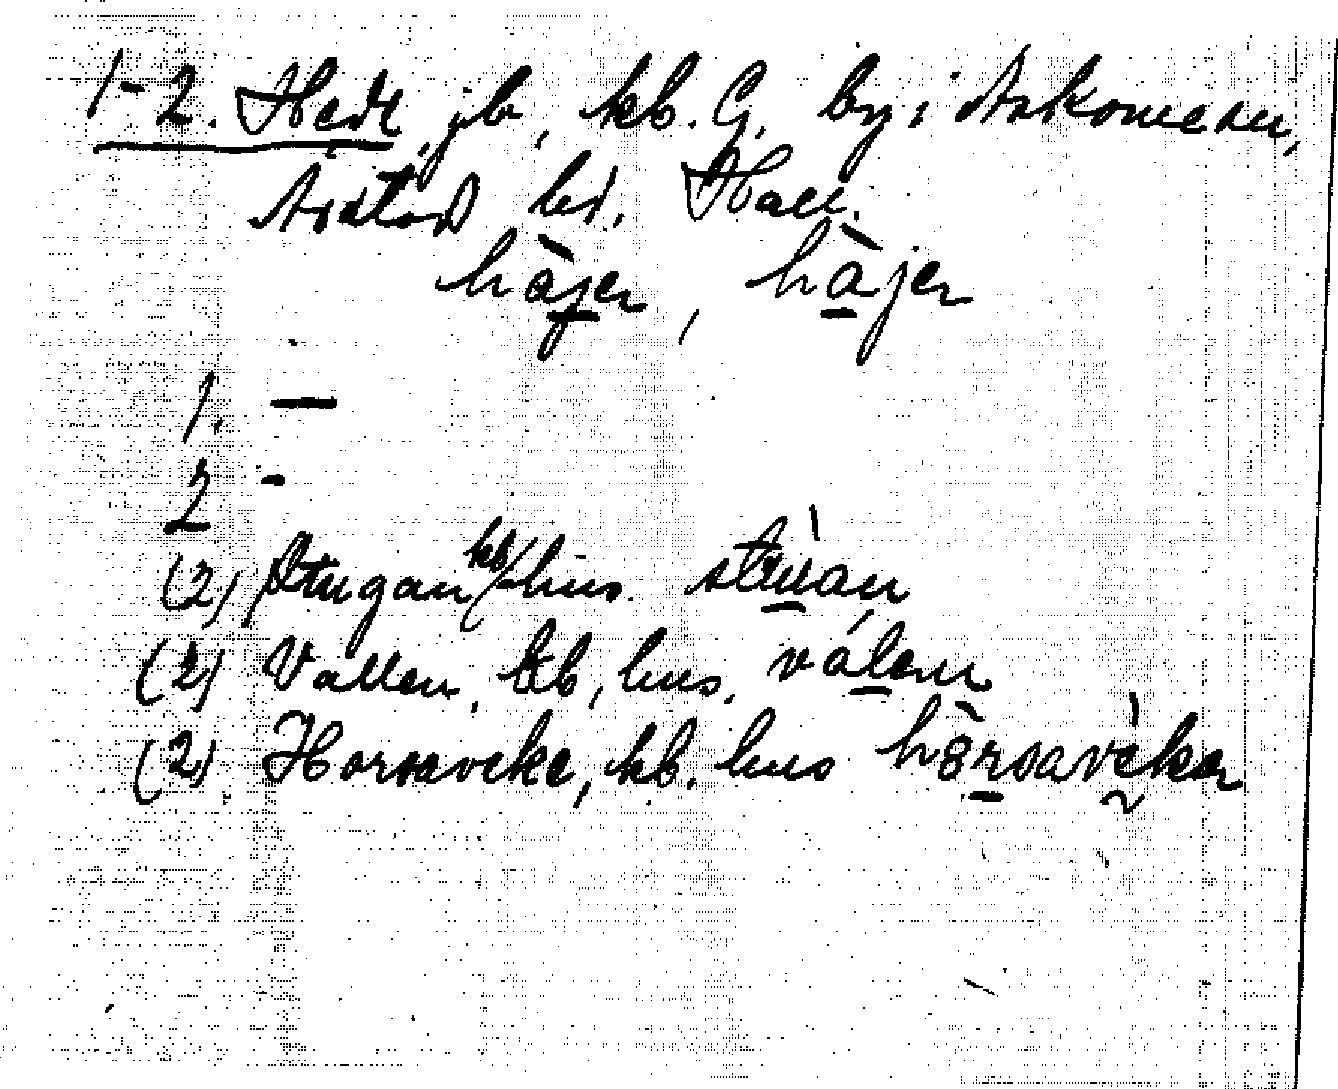 1-2. Hede, jb, kb. G. by i Askome sn,
Årstad hd. Hall.
hàjer, hàjer
1. —
2 -
(2) Stugan, kb, hus. stùan
(2) Vallen, kb, hus, válen
(2) Horsaveke, kb. hus hòrsavèka